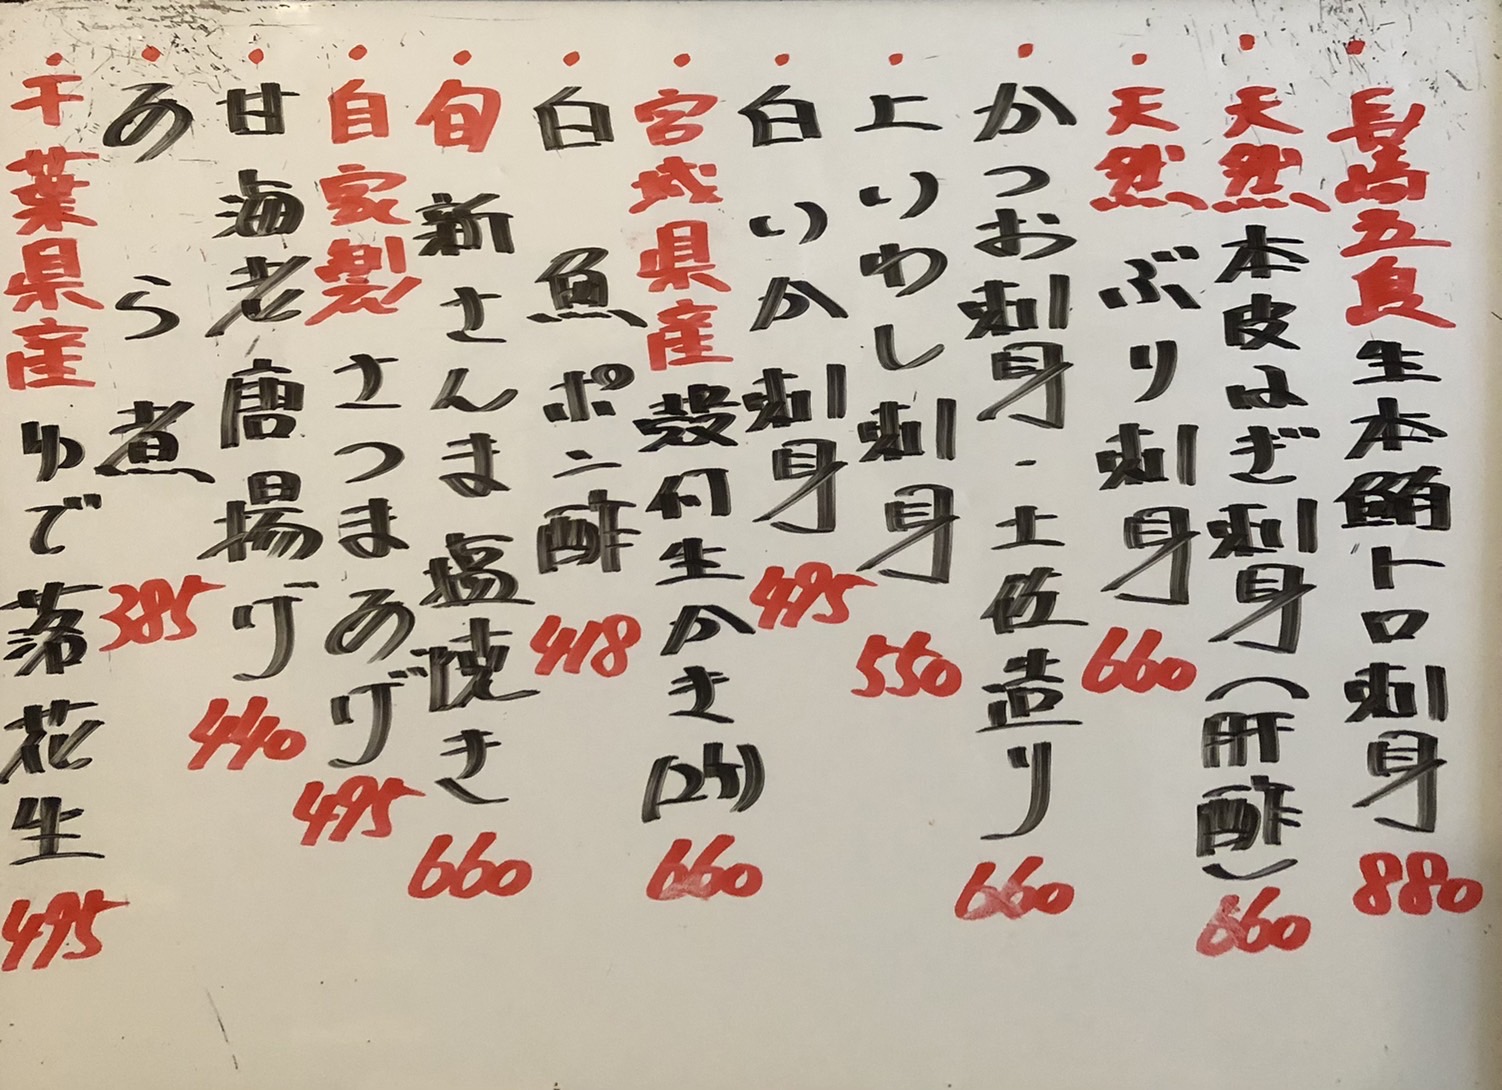 ・長崎五島生本鮪トロ刺身 880
・天然本皮はぎ刺身(肝酢) 660
・天然ぶり刺身 660
・かつお刺身・土佐造り 660
・上いわし刺身 550
・白いか刺身 495
・宮城県産殻付生かき(2ケ) 660
・白魚ポン酢 418
・旬新さんま塩焼き 660
・自家製さつまあげ 495
・甘海老唐揚げ 440
・あら煮 385
・千葉県産ゆで落花生 495